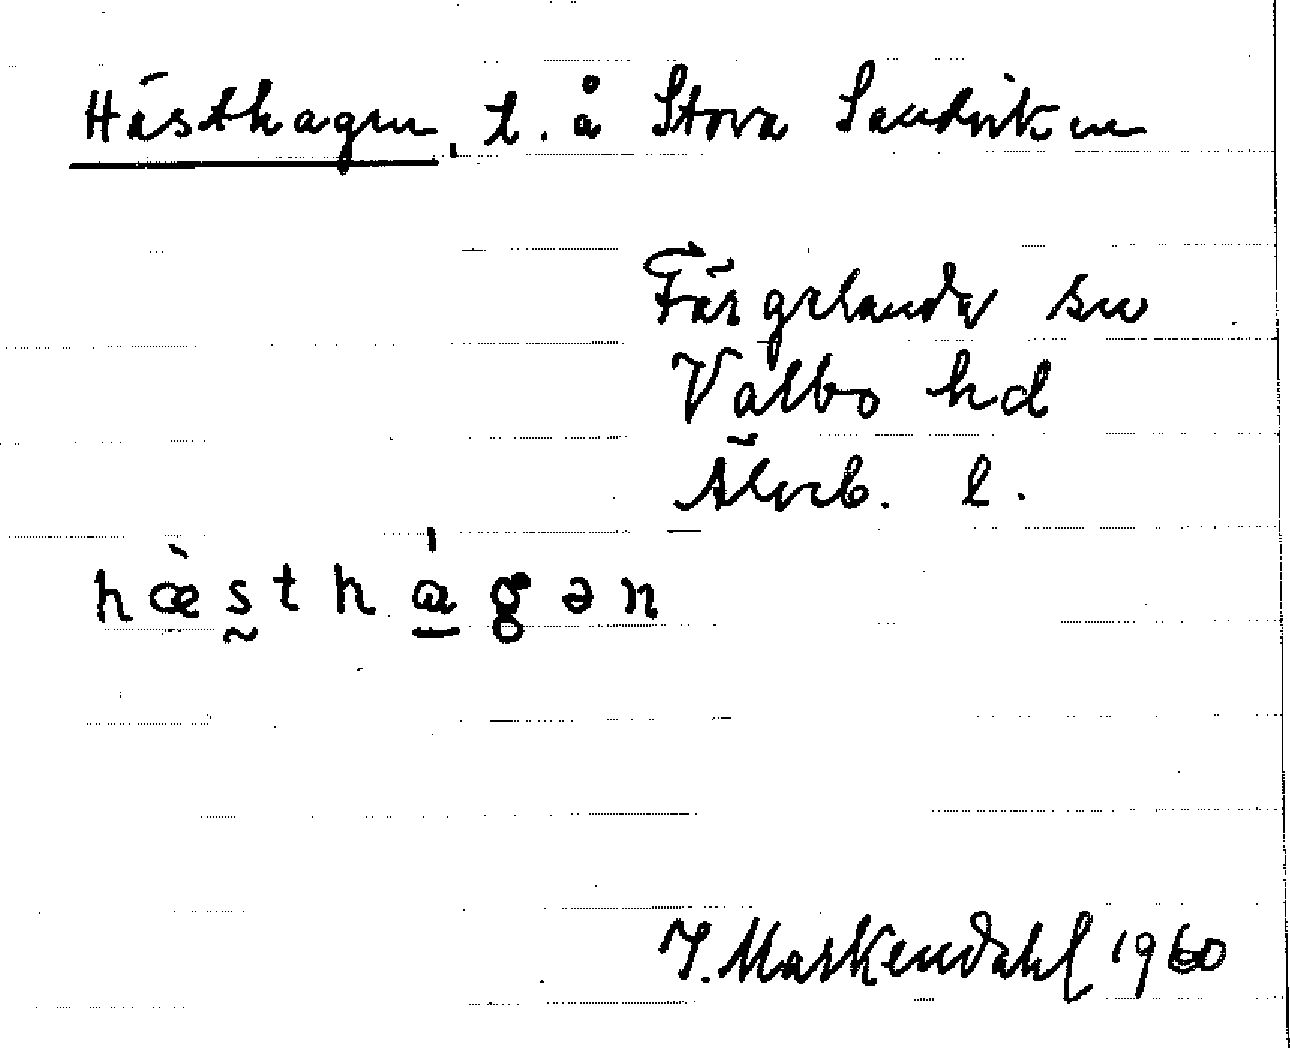 Hästhagen, t. å Stora Sandviken
Färgelanda sn
Valbo hd
Älvsb. l.
hæ̀s̰thá̱gən
I. Markendahl 1960